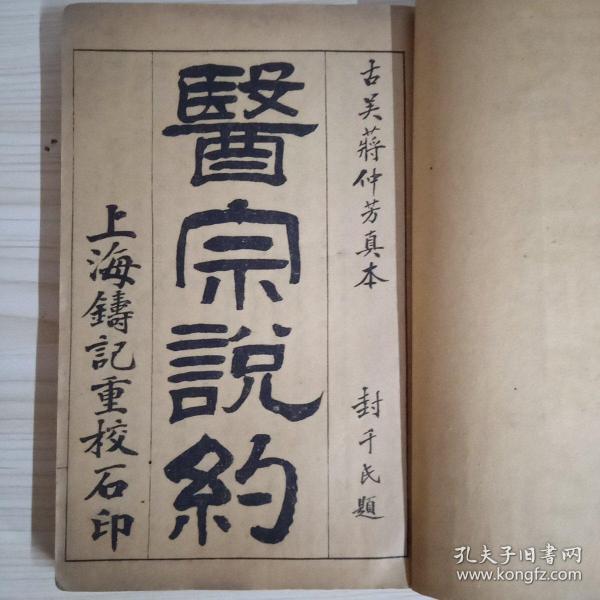 古吴蔣仲芳真本
封千氏題
醫宗說約
上海鑄記重校石印
孔夫子旧书网
www.kongfz.com